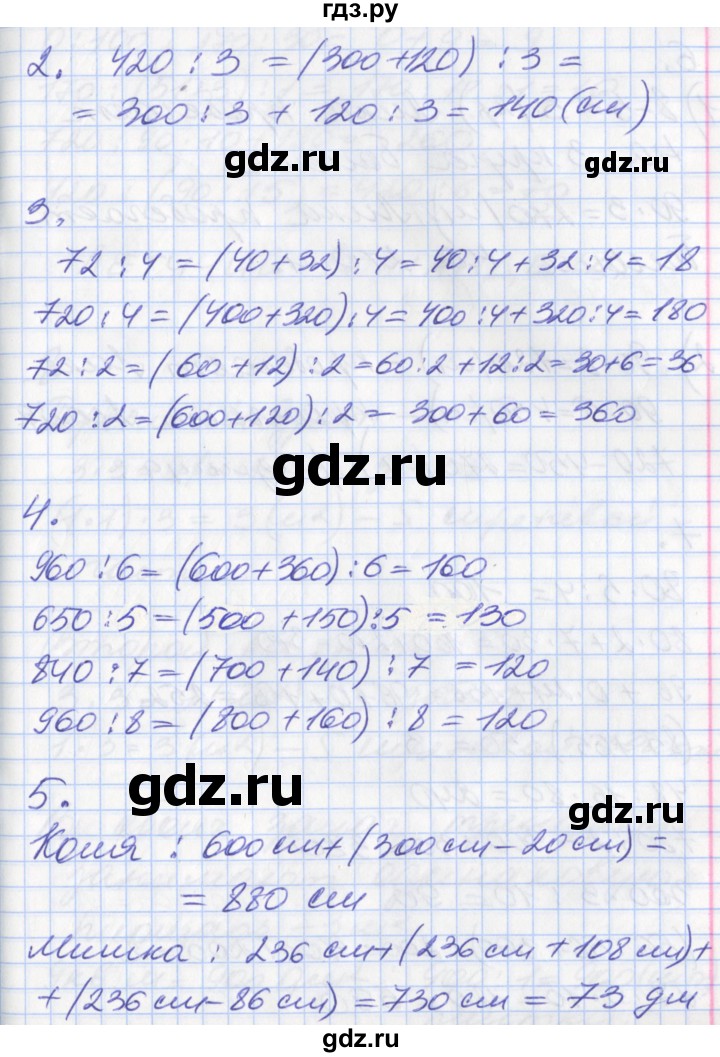 гдз.ру
2. 420 : 3 = (300+120) : 3 =
= 300 : 3 + 120 : 3 = 140 (см)
gdz.ru
gdz.ru
3.
72 : 4 = (40+32) : 4 = 40 : 4 + 32 : 4 = 18
720 : 4 = (400+320) : 4 = 400 : 4 + 320 : 4 = 180
72 : 2 = (60+12) : 2 = 60 : 2 + 12 : 2 = 30+6 = 36
720 : 2 = (600+120) : 2 = 300+60 = 360
gdz.ru
4.
960 : 6 = (600+360) : 6 = 160
650 : 5 = (500+150) : 5 = 130
840 : 7 = (700+140) : 7 = 120
960 : 8 = (800+160) : 8 = 120
gdz.ru
5.
gdz.ru
Коля : 600 см + (300 см - 20 см) =
= 880 см
Мишка : 236 см + (236 см + 108 см) +
+ (236 см - 86 см) = 730 см = 73 дм
gdz.ru